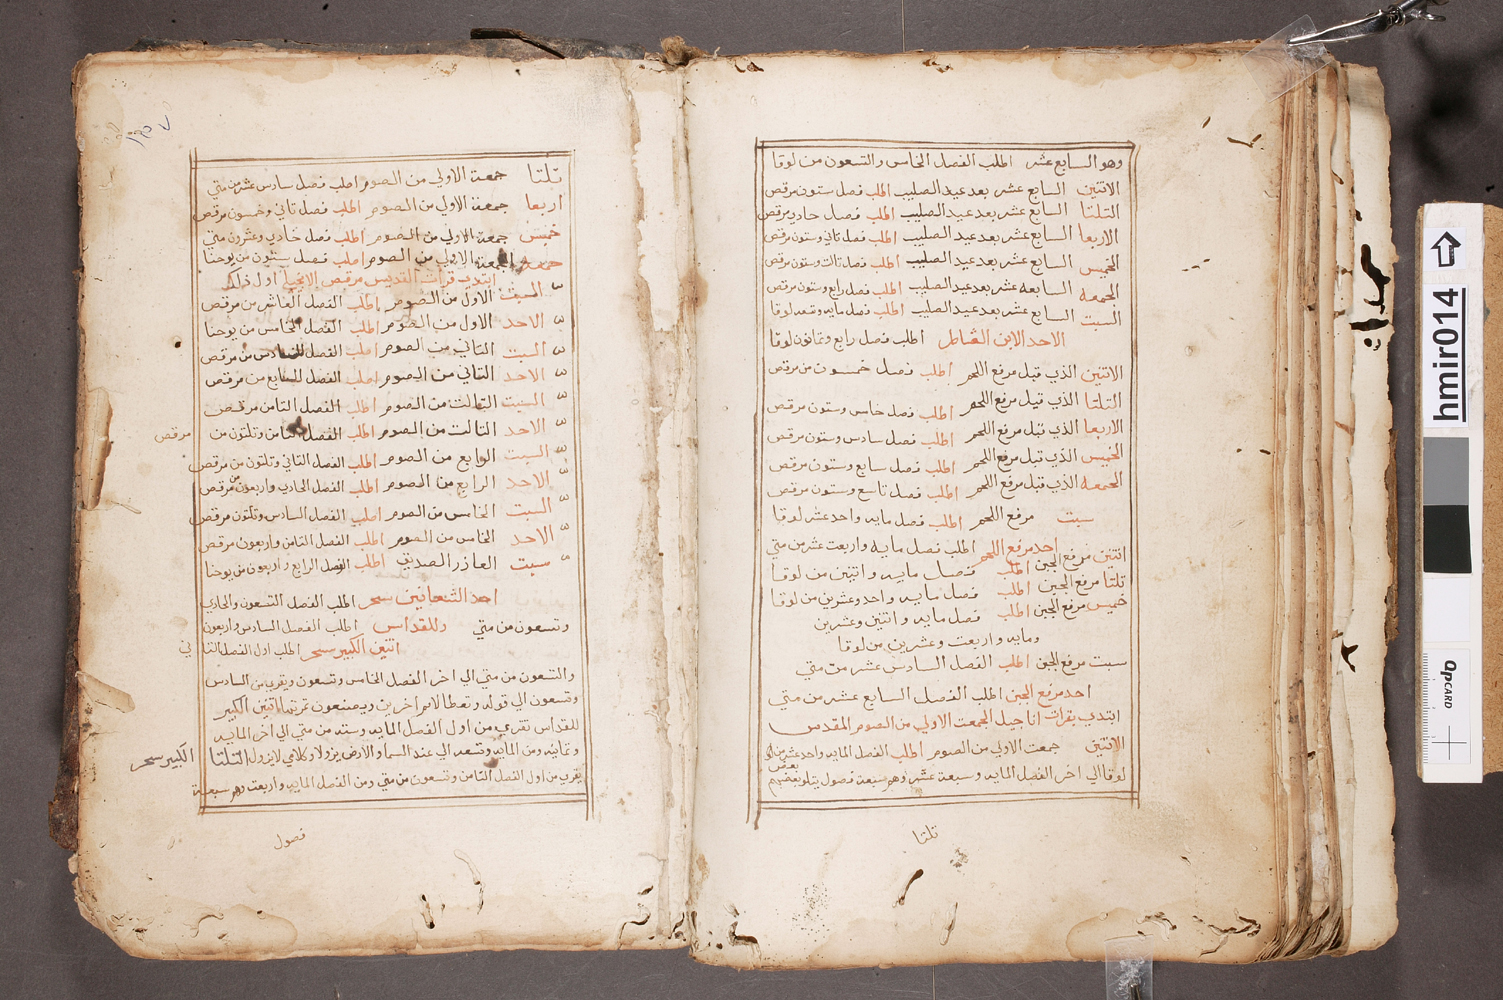 وهو السابع عشر اطلب الفصل الخامس والتسعون من لوقا
الاتنين السابع عشر بعد عيد الصليب اطلب فصل ستون مرقص
التلتا السابع عشر بعد عيد الصليب اطلب فصل حادي مرقص
الاربعا السابع عشر بعد عيد الصليب اطلب فصل تاني وستون مرقص
الخميس السابع عشر بعد عيد الصليب اطلب فصل تالت وستون مرقص
الجمعه السابعه عشر بعد عيد الصليب اطلب فصل رابع وستون مرقص
السبت السابع عشر بعد عيد الصليب اطلب فصل مايه وتسعه لوقا
الاحد الابن الشاطر اطلب فصل رابع وتمانون لوقا
الاتنين الذي قبل مرفع اللحم اطلب فصل خمسون من مرقص
التلتا الذي قبل مرفع اللحم اطلب فصل خامس وستون مرقص
الاربعا الذي قبل مرفع اللحم اطلب فصل سادس وستون مرقص
الخميس الذي قبل مرفع اللحم اطلب فصل سابع وستون مرقص
الجمعه الذي قبل مرفع اللحم اطلب فصل تاسع وستون مرقص
سبت مرفع اللحم اطلب فصل مايه واحد عشر لوقا
احد مرفع اللحم اطلب فصل مايه واربعت عشر من متي
اتنين مرفع الجبن اطلب فصل مايه واتنين من لوقا
تلتا مرفع الجبن اطلب فصل مايه واحد وعشرين من لوقا
خميس مرفع الجبن اطلب فصل مايه واتنين وعشرين
ومايه واربعت وعشرين من لوقا
سبت مرفع الجبن اطلب الفصل السادس عشر من متي
احد مرفع الجبن اطلب الفصل السابع عشر من متي
ابتدي بقرات اناجيل الجمعت الاولي من الصوم المقدس
الاتنين جمعت الاولي من الصوم اطلب الفصل المايه واحد عشر من لو
لوقا الي اخر الفصل المايه وسبعة عشر وهم سبعة فصول يتلو بعضهم بعض
تلتا
تلتا جمعة الاولي من الصوم اطلب فصل سادس عشر من متي
اربعا جمعة الاولي من الصوم اطلب فصل تاني وخمسون مرقص
خميس جمعة الاولي من الصوم اطلب فصل حادي وعشرون متي
جمعه الجمعة الاولي من الصوم اطلب فصل ستون من يوحنا
ابتدي قرات القديس مرقص الانجيلي اول ذلك
السبت الاول من الصوم اطلب الفصل العاشر من مرقص
الاحد الاول من الصوم اطلب الفصل الخامس من يوحنا
السبت التاني من الصوم اطلب الفصل السادس من مرقص
الاحد التاني من الصوم اطلب الفصل السابع من مرقص
السبت التالت من الصوم اطلب الفصل التامن مرقص
الاحد التالت من الصوم اطلب الفصل التامن وتلتون من مرقص
السبت الرابع من الصوم اطلب الفصل التاني وتلتون من مرقص
الاحد الرابع من الصوم اطلب الفصل الحادي واربعون من مرقص
السبت الخامس من الصوم اطلب الفصل السادس وتلتون مرقص
الاحد الخامس من الصوم اطلب الفصل التامن واربعون مرقص
سبت العازر الصديق اطلب الفصل الرابع واربعون من يوحنا
احد الشعانين سحر اطلب الفصل التسعون والحادي
وتسعون من متي وللقداس اطلب الفصل السادس واربعون
اتنين الكبير سحر اطلب اول الفصل التاني
والتسعون من متي الي اخر الفصل الخامس وتسعون ويقري من السادس
وتسعون الي قوله وتعطا لامم اخرين ويصنعون تمرتها اتنين الكبير
للقداس تقري من اول الفصل المايه وسته من متي الي اخر المايه
وتمانيه ومن المايه وتسعه الي عند السما والارض يزولا وكلامي لا يزول التلتا الكبير سحر
يقري من اول الفصل التامن وتسعون من متي ومن الفصل المايه واربعت وهم سبعة
فصول
hmir014
QPCARD